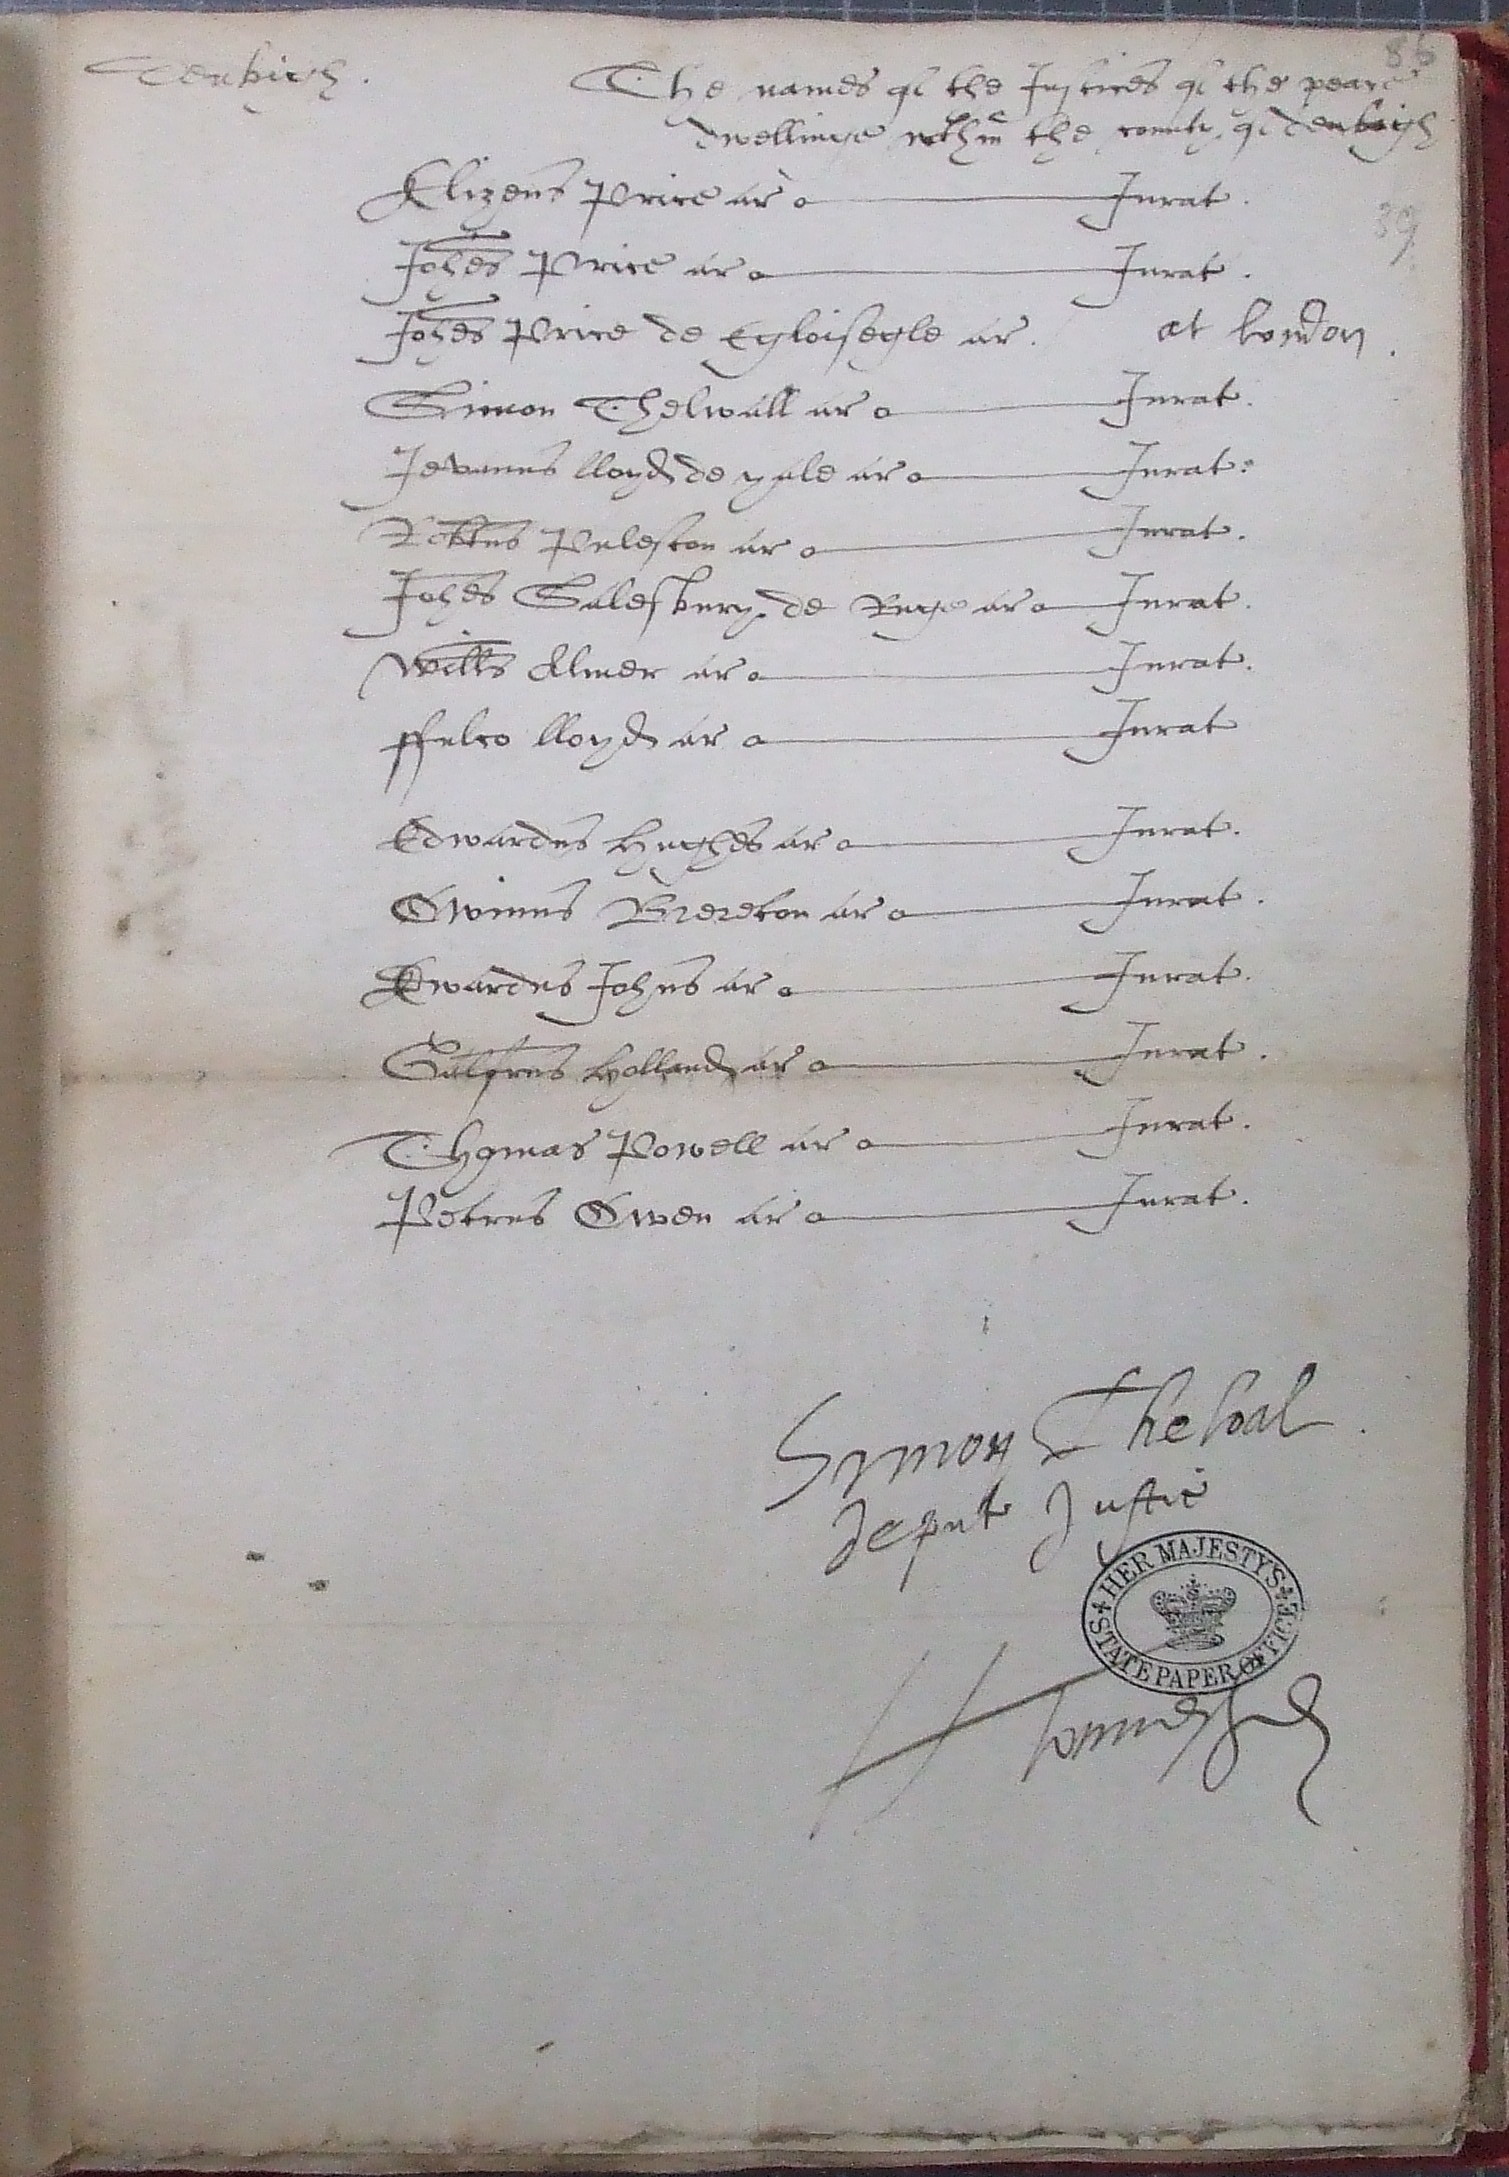 86
Denbigh.
The names of the Justices of the peace
dwellinge wthin the county of denbigh
39
Elizeus Price ar Jurat.
Johes Price ar Jurat.
Johes Price de Egloisegle ar. at london.
Simon Thelwall ar Jurat.
Jevanus lloyd de yale ar Jurat.
Robtus Puleston ar Jurat.
Johes Salesbury de Ruge ar Jurat.
Wills Almer ar Jurat.
ffulco lloyd ar Jurat
Edwardus Hughes ar Jurat.
Owinus Brereton ar Jurat.
Edwardus Johns ar Jurat.
Galfrus Holland ar Jurat.
Thomas Powell ar Jurat.
Petrus Owen ar Jurat.
Symon Thelwal.
deput Justic
HER MAJESTY'S STATE PAPER OFFICE
H Townshend